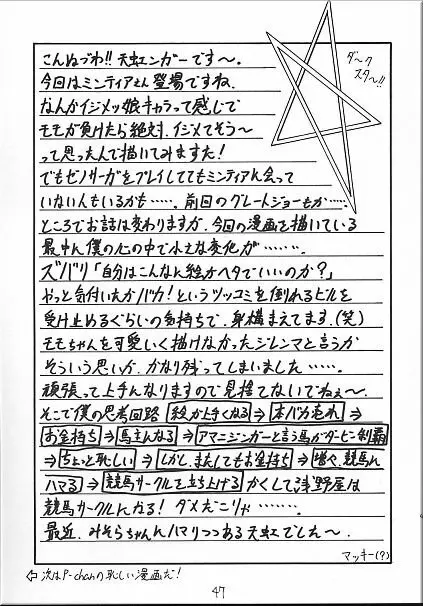 こんぬづわ!! 天虹ンガーです〜。
ダ〜ク
スタ〜!!
今回はミンティアさん登場ですね.
なんかイジメッ娘キャラって感じで
モモが負けたら絶対.イジメてそう〜
って思ったんで描いてみますた!
でもゼノサーガをプレイしててもミンティアに会って
いない人もいるかも…….前回のグレートジョーもか……
ところでお話は変わりますが.今回の漫画を描いている
最中に僕の心の中で小さな変化が………
ズバリ「自分はこんなに絵がヘタでいいのか?」
やっと気付いたかバカ!というツッコミを倒れるビルを
受け止めるぐらいの気持ちで.身構えてます.(笑)
モモちゃんを可愛いく描けなかったジレンマと言うか
そういう思いが.かなり残ってしまいました…….
頑張って上手になりますので見捨てないでねぇ〜.
そこで僕の思考回路 絵が上手くなる⇒本バカ売れ⇒
お金持ち⇒馬主になる⇒アマニジンガーと言う馬がダービー制覇
⇒ちょっと恥しい⇒しかし.またしてもお金持ち⇒増々.競馬に
ハマる⇒競馬サークルを立ち上げる かくして浅野屋は
競馬サークルになる! ダメだこりゃ…….
最近.みそらちゃんにハマりつつある天虹でした〜.
マッキー(?)
⇦ 次はP-chanの恥しい漫画だ!
47